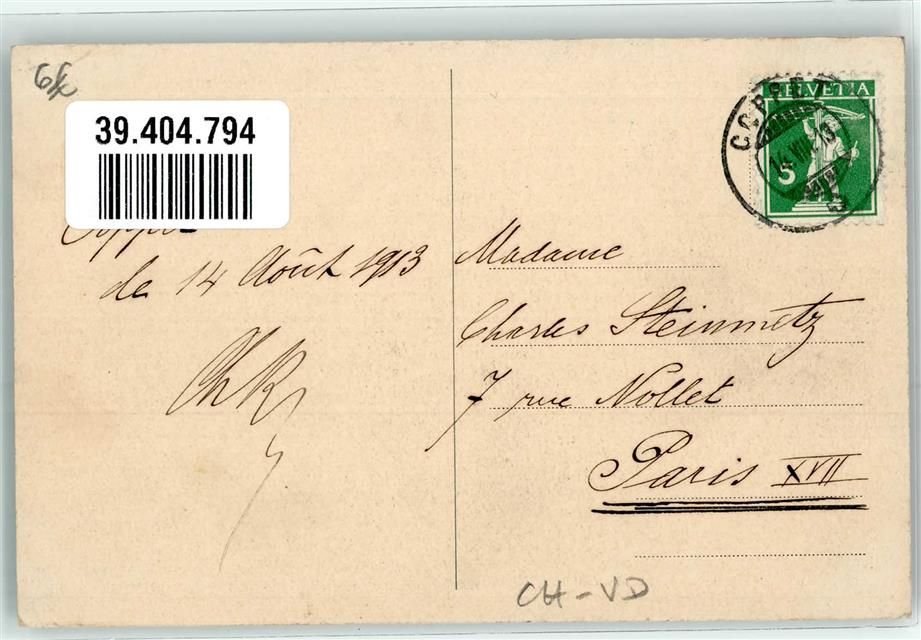 39.404.794
de 14 Août 1913
HELVETIA
COPPET
14.VIII.13
5
Madame
Charles Steinmetz
7 rue Nollet
Paris XVII
CH-VD